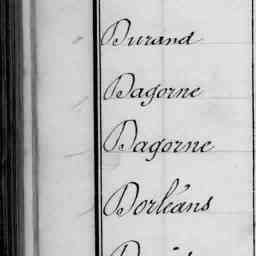 Durand
Dagorne
Dagorne
Dorléans